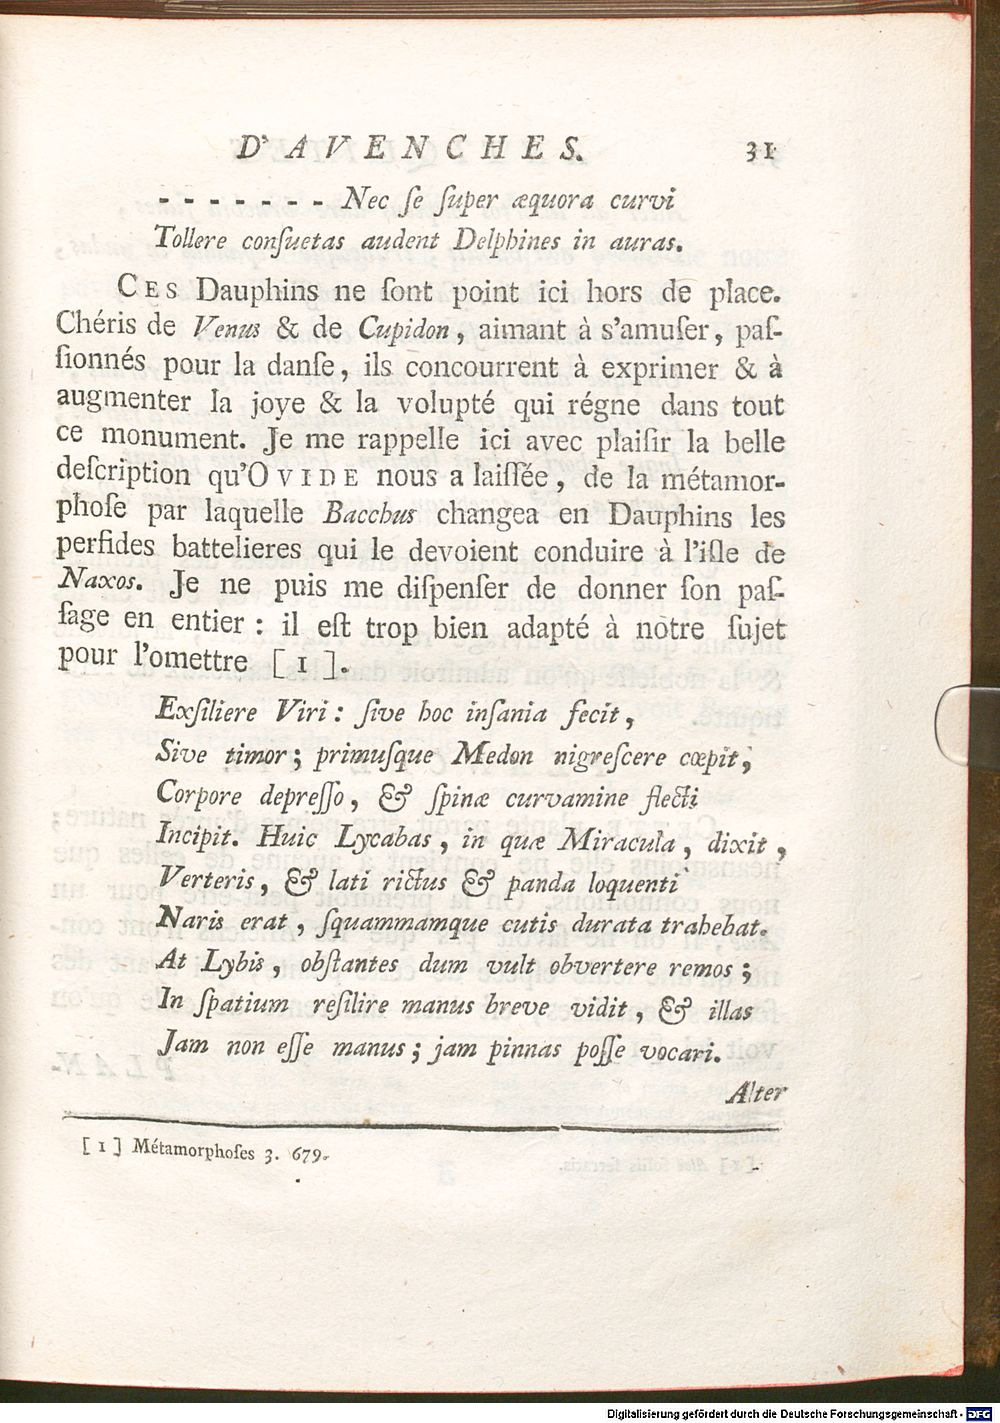 D'AVENCHES. 31
- - - - - - - Nec ſe ſuper æquora curvi
Tollere conſuetas audent Delphines in auras.
CES Dauphins ne ſont point ici hors de place.
Chéris de Venus & de Cupidon, aimant à s'amuſer, paſ-
ſionnés pour la danſe, ils concourrent à exprimer & à
augmenter la joye & la volupté qui régne dans tout
ce monument. Je me rappelle ici avec plaiſir la belle
deſcription qu'OVIDE nous a laiſſée, de la métamor-
phoſe par laquelle Bacchus changea en Dauphins les
perfides battelieres qui le devoient conduire à l'iſle de
Naxos. Je ne puis me diſpenſer de donner ſon paſ-
ſage en entier : il eſt trop bien adapté à nòtre ſujet
pour l'omettre [1].
Exſiliere Viri : ſive hoc inſania fecit,
Sive timor; primuſque Medon nigreſcere cœpit,
Corpore depreſſo, & ſpinæ curvamine flecti
Incipit. Huic Lycabas, in quæ Miracula, dixit,
Verteris, & lati rictus & panda loquenti
Naris erat, ſquammamque cutis durata trahebat.
At Lybis, obſtantes dum vult obvertere remos;
In ſpatium reſilire manus breve vidit, & illas
Jam non eſſe manus; jam pinnas poſſe vocari.
Alter
[1] Métamorphoſes 3. 679.
Digitalisierung gefördert durch die Deutsche Forschungsgemeinschaft - DFG